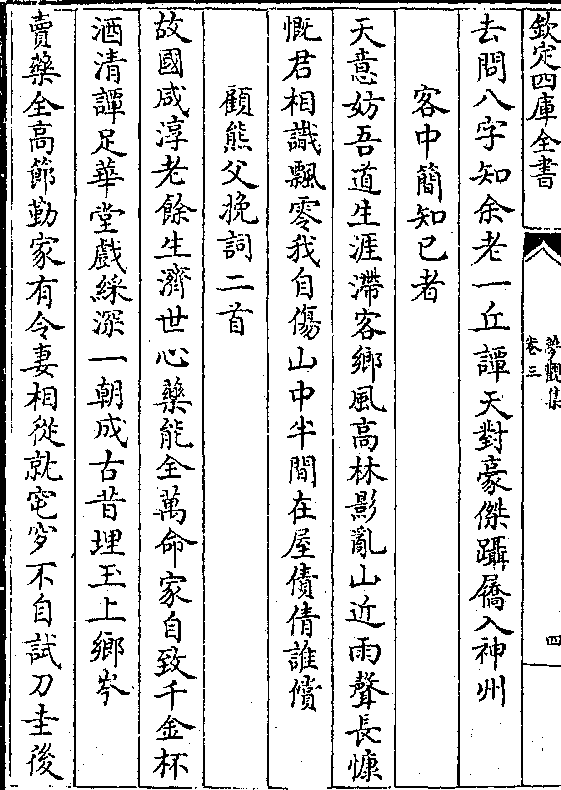 欽定四庫全書
夢觀集
卷三
四
去問八字知余老一丘譚天對豪傑躡屩入神州
客中簡知已者
天意妨吾道生涯滯客鄉風高林影亂山近雨聲長慷
慨君相識飄零我自傷山中半間在屋債倩誰償
顧熊父挽詞二首
故國咸淳老餘生濟世心藥能全萬命家自致千金杯
酒清譚足華堂戲綵深一朝成古昔埋玉上鄉岑
賣藥全高節勤家有令妻相從就窀穸不自試刀圭後